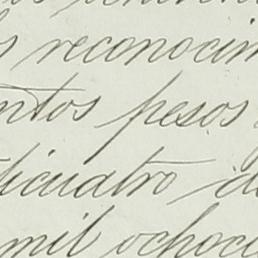 s reconocim
ntos pesos
ticuatro de
mil ochoci